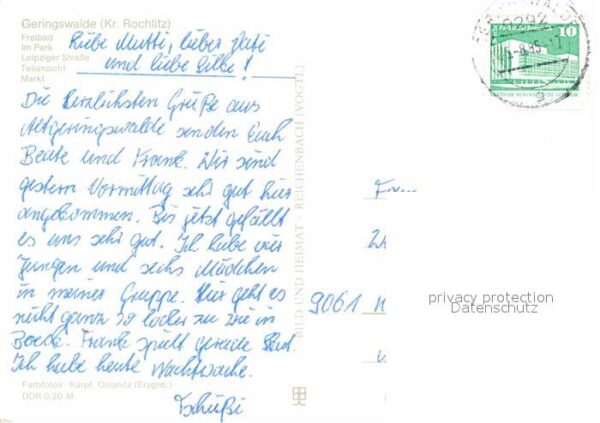 Geringswalde (Kr. Rochlitz)
Freibad
Im Park
Leipziger Straße
Teilansicht
Markt
Liebe Mutti, lieber Vati
und liebe Silke!
Die herzlichsten Grüße aus
Altgeringswalde senden Euch
Beate und Frank. Wir sind
gestern Vormittag sehr gut hier
angekommen. Bis jetzt gefällt
es uns sehr gut. Ich habe vier
Jungen und sechs Mädchen
in meiner Gruppe. Hier geht es
nicht ganz so locker zu wie in
Frank spielt gerade Skat.
Ich habe heute Nachtwache.
Tschüßi
Farbfotos: Karpf, Oelsnitz (Erzgeb.)
DDR 0,20 M
BILD UND HEIMAT REICHENBACH (VOGTL)
9292
10
9061
privacy protection
Datenschutz